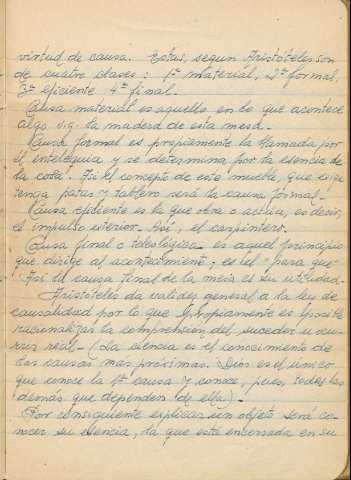 virtud de causa. Estas, segun Aristóteles son
de cuatro clases: 1ª material, 2ª formal,
3ª eficiente 4ª final.
Causa material es aquello en lo que acontece
algo v.g. la madera de esta mesa.
Causa formal es propiamente la llamada por
él entelequia y se determina por la esencia de
la cosa. Así el concepto de este mueble, que exige
tenga patas y tablero será la causa formal.
Causa eficiente es la que obra o actúa, es decir,
el impulso exterior. Así, el carpintero.
Causa final o teleológica es aquel principio
que dirige al acontecimiento; es el "para qué"
Así la causa final de la mesa es su utilidad.
Aristóteles da validez general a la ley de
causalidad por lo que propiamente es posible
racionalizar la comprensión del suceder u ocu-
rrir real. (La ciencia es el conocimiento de
las causas más próximas. Dios es el único
que conoce la 1ª causa y conoce, pues, todas las
demás que dependen de ella).
Por consiguiente explicar un objeto será co-
nocer su esencia, la que está encerrada en su